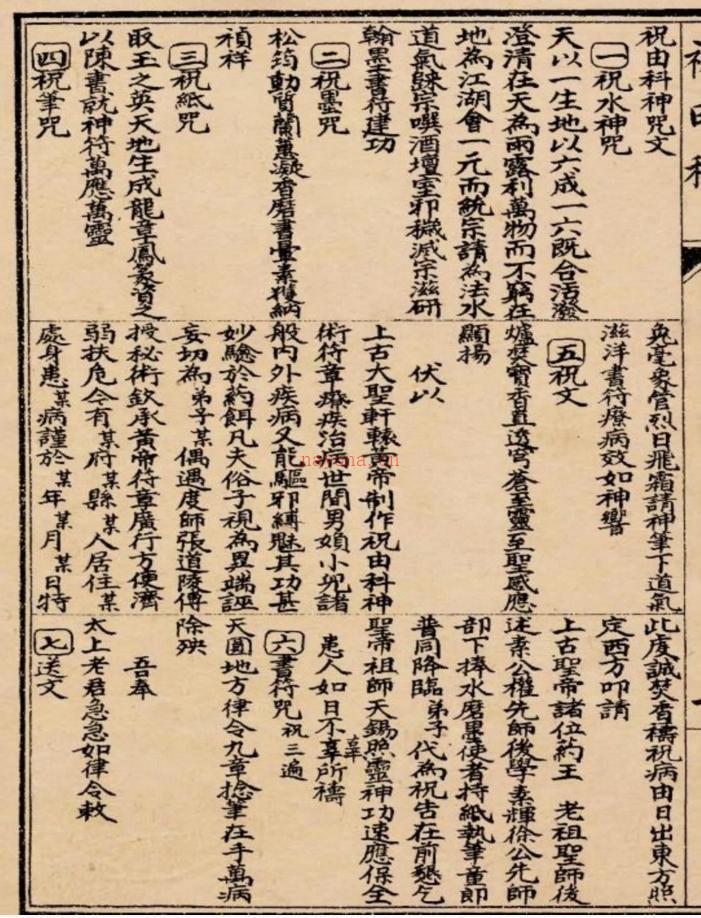 祝由科神咒文
一祝水神咒
天以一生地以六成一六既合活潑
澄清在天為雨露利萬物而不窮在
地為江湖會一元而統宗請為法水
道氣歸宗噀酒壇室邪穢滅宗滋研
翰墨書符建功
二祝墨咒
松筠動質蘭蕙凝香磨書素獲納
禎祥
三祝紙咒
取玉之英天地生成龍章鳳篆資之
以陳書就神符萬應萬靈
四祝筆咒
兔毫象管烈日飛霜請神筆下道氣
滋洋書符療病效如神響
五祝文
爐焚寶香直透穹蒼至靈至聖感應
顯揚
伏以
上古大聖軒轅黃帝制作祝由科神
術符章療疾治病世間男婦小兒諸
般内外疾病又能驅邪縛魅其功甚
妙驗於葯餌凡夫俗子視為異端誣
妄切為弟子某偶遇度師張道陵傳
授秘術欽承黃帝符章廣行方便濟
弱扶危今有某府某縣某人居住某
處身患某病謹於某年某月某日特
此虔誠焚香禱祝病由日出東方照
定西方叩請
上古聖帝諸位葯王 老祖聖師後
述素公權先師後學素輝徐公先師
部下捧水磨墨使者持紙執筆童郎
普同降臨弟子代為祝告在前懇乞
聖帝祖師天錫照靈神功速應保全
患人如日不辜所禱
六書符咒 祝三遍
天圓地方律令九章捻筆在手萬病
除殃
吾奉
太上老君急急如律令敕
七送文